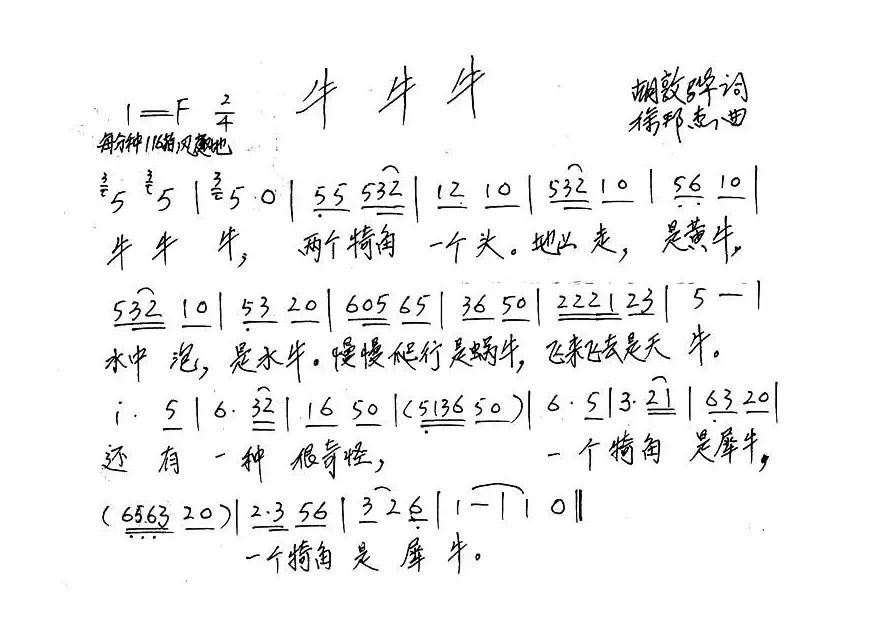 牛 牛 牛
1=F 2/4
胡敦骅词
徐邦杰曲
每分钟116拍风趣地
3 5 3 5 | 3 5 0 | 5 5 5 3 2 | 1 2 1 0 | 5 3 2 1 0 | 5 6 1 0 |
牛 牛 牛, 两个犄角 一个头。地上 走, 是黄牛,
5 3 2 1 0 | 5 3 2 0 | 6 0 5 6 5 | 3 6 5 0 | 2 2 2 1 2 3 | 5 — |
水中 泡, 是水牛。慢慢爬行是蜗牛, 飞来飞去是天 牛。
i· 5 | 6· 3 2 | 1 6 5 0 | (5 1 3 6 5 0) | 6· 5 | 3· 2 1 | 6 3 2 0 |
还 有 一 种 很奇怪, 一 个 犄角 是犀牛,
(6 5. 6 3 2 0) | 2· 3 5 6 | 3 2 6 | 1 — | 1 0 ‖
一个犄角 是 犀 牛。